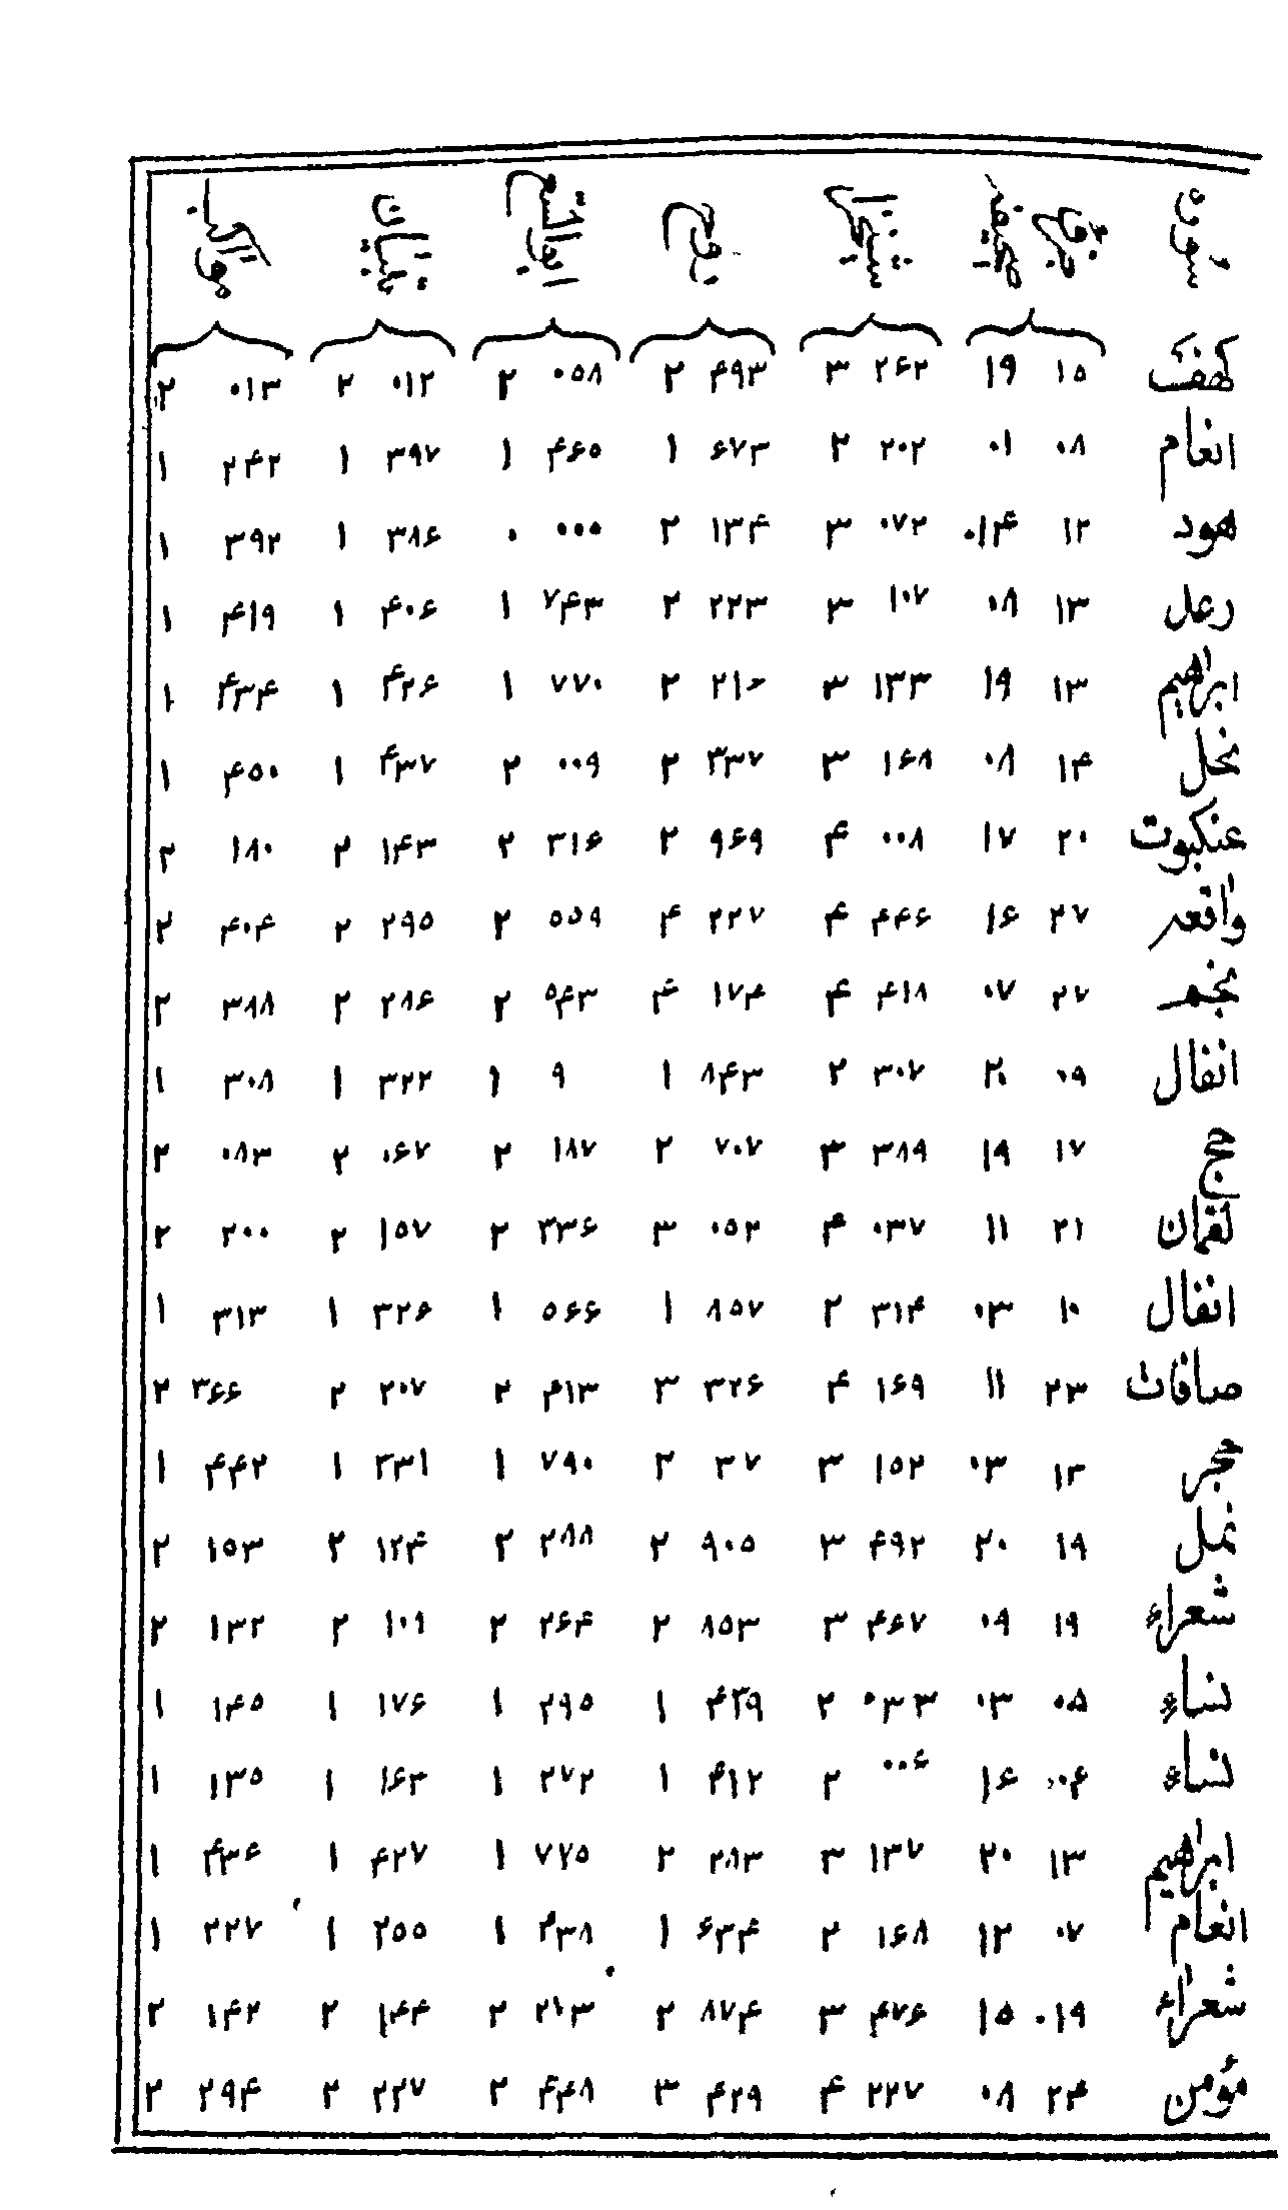 سوره جزو صفحه نوی تبیان
کهف ۱۵ ۱۹ ۲۶۲ ۳ ۴۹۳ ۲ ۰۵۸ ۲ ۰۱۲ ۲ ۰۱۳ ۲
انعام ۰۸ ۰۱ ۲۰۲ ۲ ۶۷۳ ۱ ۴۶۵ ۱ ۳۹۷ ۱ ۲۴۲ ۱
هود ۱۲ ۰۱۴ ۰۷۲ ۳ ۱۳۴ ۲ ۰۰۰ ۰ ۳۸۶ ۱ ۳۹۲ ۱
رعد ۱۳ ۰۸ ۱۰۷ ۳ ۲۲۳ ۲ ۷۴۳ ۱ ۴۰۶ ۱ ۴۱۹ ۱
ابراهیم ۱۳ ۱۹ ۱۳۳ ۳ ۲ ۷۷۰ ۱ ۴۲۶ ۱ ۴۳۴ ۱
نحل ۱۴ ۰۸ ۱۶۸ ۳ ۳۳۷ ۲ ۰۰۹ ۲ ۴۳۷ ۱ ۴۵۰ ۱
عنکبوت ۲۰ ۱۷ ۰۰۸ ۴ ۹۶۹ ۲ ۳۱۶ ۲ ۱۴۳ ۲ ۱۸۰ ۲
واقعه ۲۷ ۱۶ ۴۴۶ ۴ ۲۲۷ ۴ ۵۵۹ ۲ ۲۹۵ ۲ ۴۰۴ ۲
نجم ۲۷ ۰۷ ۴۱۸ ۴ ۱۷۴ ۴ ۵۴۳ ۲ ۲۸۶ ۲ ۳۸۸ ۲
انفال ۰۹ ۲۰ ۳۰۷ ۲ ۸۴۳ ۱ ۹ ۱ ۳۲۲ ۱ ۳۰۸ ۱
حج ۱۷ ۱۹ ۳۸۹ ۳ ۷۰۷ ۲ ۱۸۷ ۲ ۰۶۷ ۲ ۰۸۳ ۲
لقمان ۲۱ ۱۱ ۰۳۷ ۴ ۰۵۲ ۳ ۳۳۶ ۲ ۱۵۷ ۲ ۲۰۰ ۲
انفال ۱۰ ۰۳ ۳۱۴ ۲ ۸۵۷ ۱ ۵۶۶ ۱ ۳۲۶ ۱ ۳۱۳ ۱
صافات ۲۳ ۱۱ ۱۶۹ ۴ ۳۲۶ ۳ ۴۱۳ ۲ ۲۰۷ ۲ ۳۶۶ ۲
حجر ۱۳ ۰۳ ۱۵۲ ۳ ۳۷ ۲ ۷۹۰ ۱ ۳۳۱ ۱ ۴۴۲ ۱
نمل ۱۹ ۲۰ ۴۹۲ ۳ ۹۰۵ ۲ ۲۸۸ ۲ ۱۲۴ ۲ ۱۵۳ ۲
شعراء ۱۹ ۰۹ ۴۶۷ ۳ ۸۵۳ ۲ ۲۶۴ ۲ ۱۰۹ ۲ ۱۳۲ ۲
نساء ۰۵ ۰۳ ۰۳۳ ۲ ۴۳۹ ۱ ۲۹۵ ۱ ۱۷۶ ۱ ۱۴۵ ۱
نساء ۰۶ ۱۶ ۰۰۶ ۲ ۴۱۲ ۱ ۲۷۲ ۱ ۱۶۳ ۱ ۱۳۵ ۱
ابراهیم ۱۳ ۲۰ ۱۳۷ ۳ ۲۸۳ ۲ ۷۷۵ ۱ ۴۲۷ ۱ ۴۳۶ ۱
انعام ۰۷ ۱۲ ۱۶۸ ۲ ۶۳۴ ۱ ۴۳۸ ۱ ۲۵۵ ۱ ۲۲۷ ۱
شعراء ۰۱۹ ۱۵ ۴۷۶ ۳ ۸۷۴ ۲ ۲۱۳ ۲ ۱۴۴ ۲ ۱۴۲ ۲
مؤمن ۲۴ ۰۸ ۲۲۷ ۴ ۴۲۹ ۳ ۴۴۸ ۲ ۲۲۷ ۲ ۲۹۴ ۲